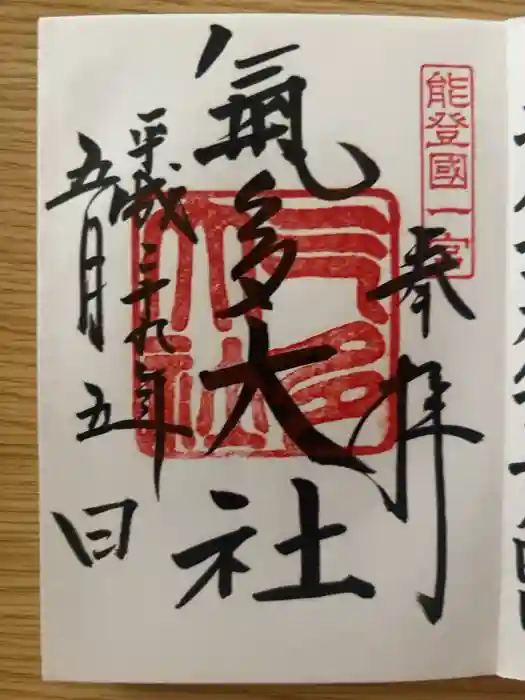 能登國一宮
奉拝
氣多大社
平成二十九年
五月五日